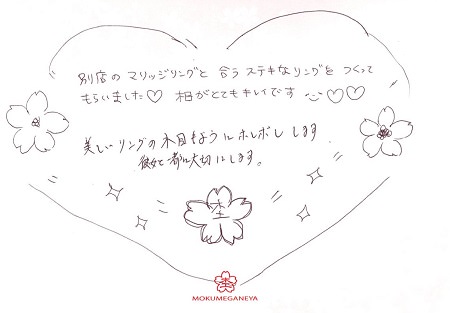 別店の マリッジリングと 合う ステキなリングを つくって
もらいました♡ 柾がとてもキレイです ♡♡
美しいリングの木目もように ホレボレ します
彼女と一緒に大切にします。
MOKUMEGANEYA